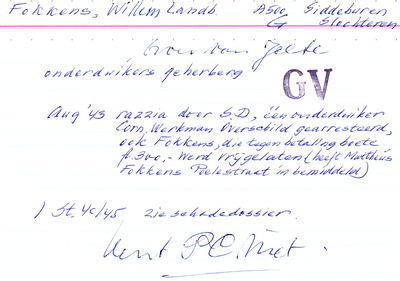 Fokkens, Willem Landb. A500 Siddeburen
G Slochteren
Vrouw van Jelte
onderduikers geherberg
GV
Aug '43 razzia door S.D., één onderduiker
Corn. Werkman Overschild gearresteerd,
ook Fokkens, die tegen betaling boete
f. 300,- werd vrijgelaten (heeft Mattheüs
Fokkens Poelestraat in bemiddeld)
) St. 40/45 zie schadedossier.
Kent P.C.